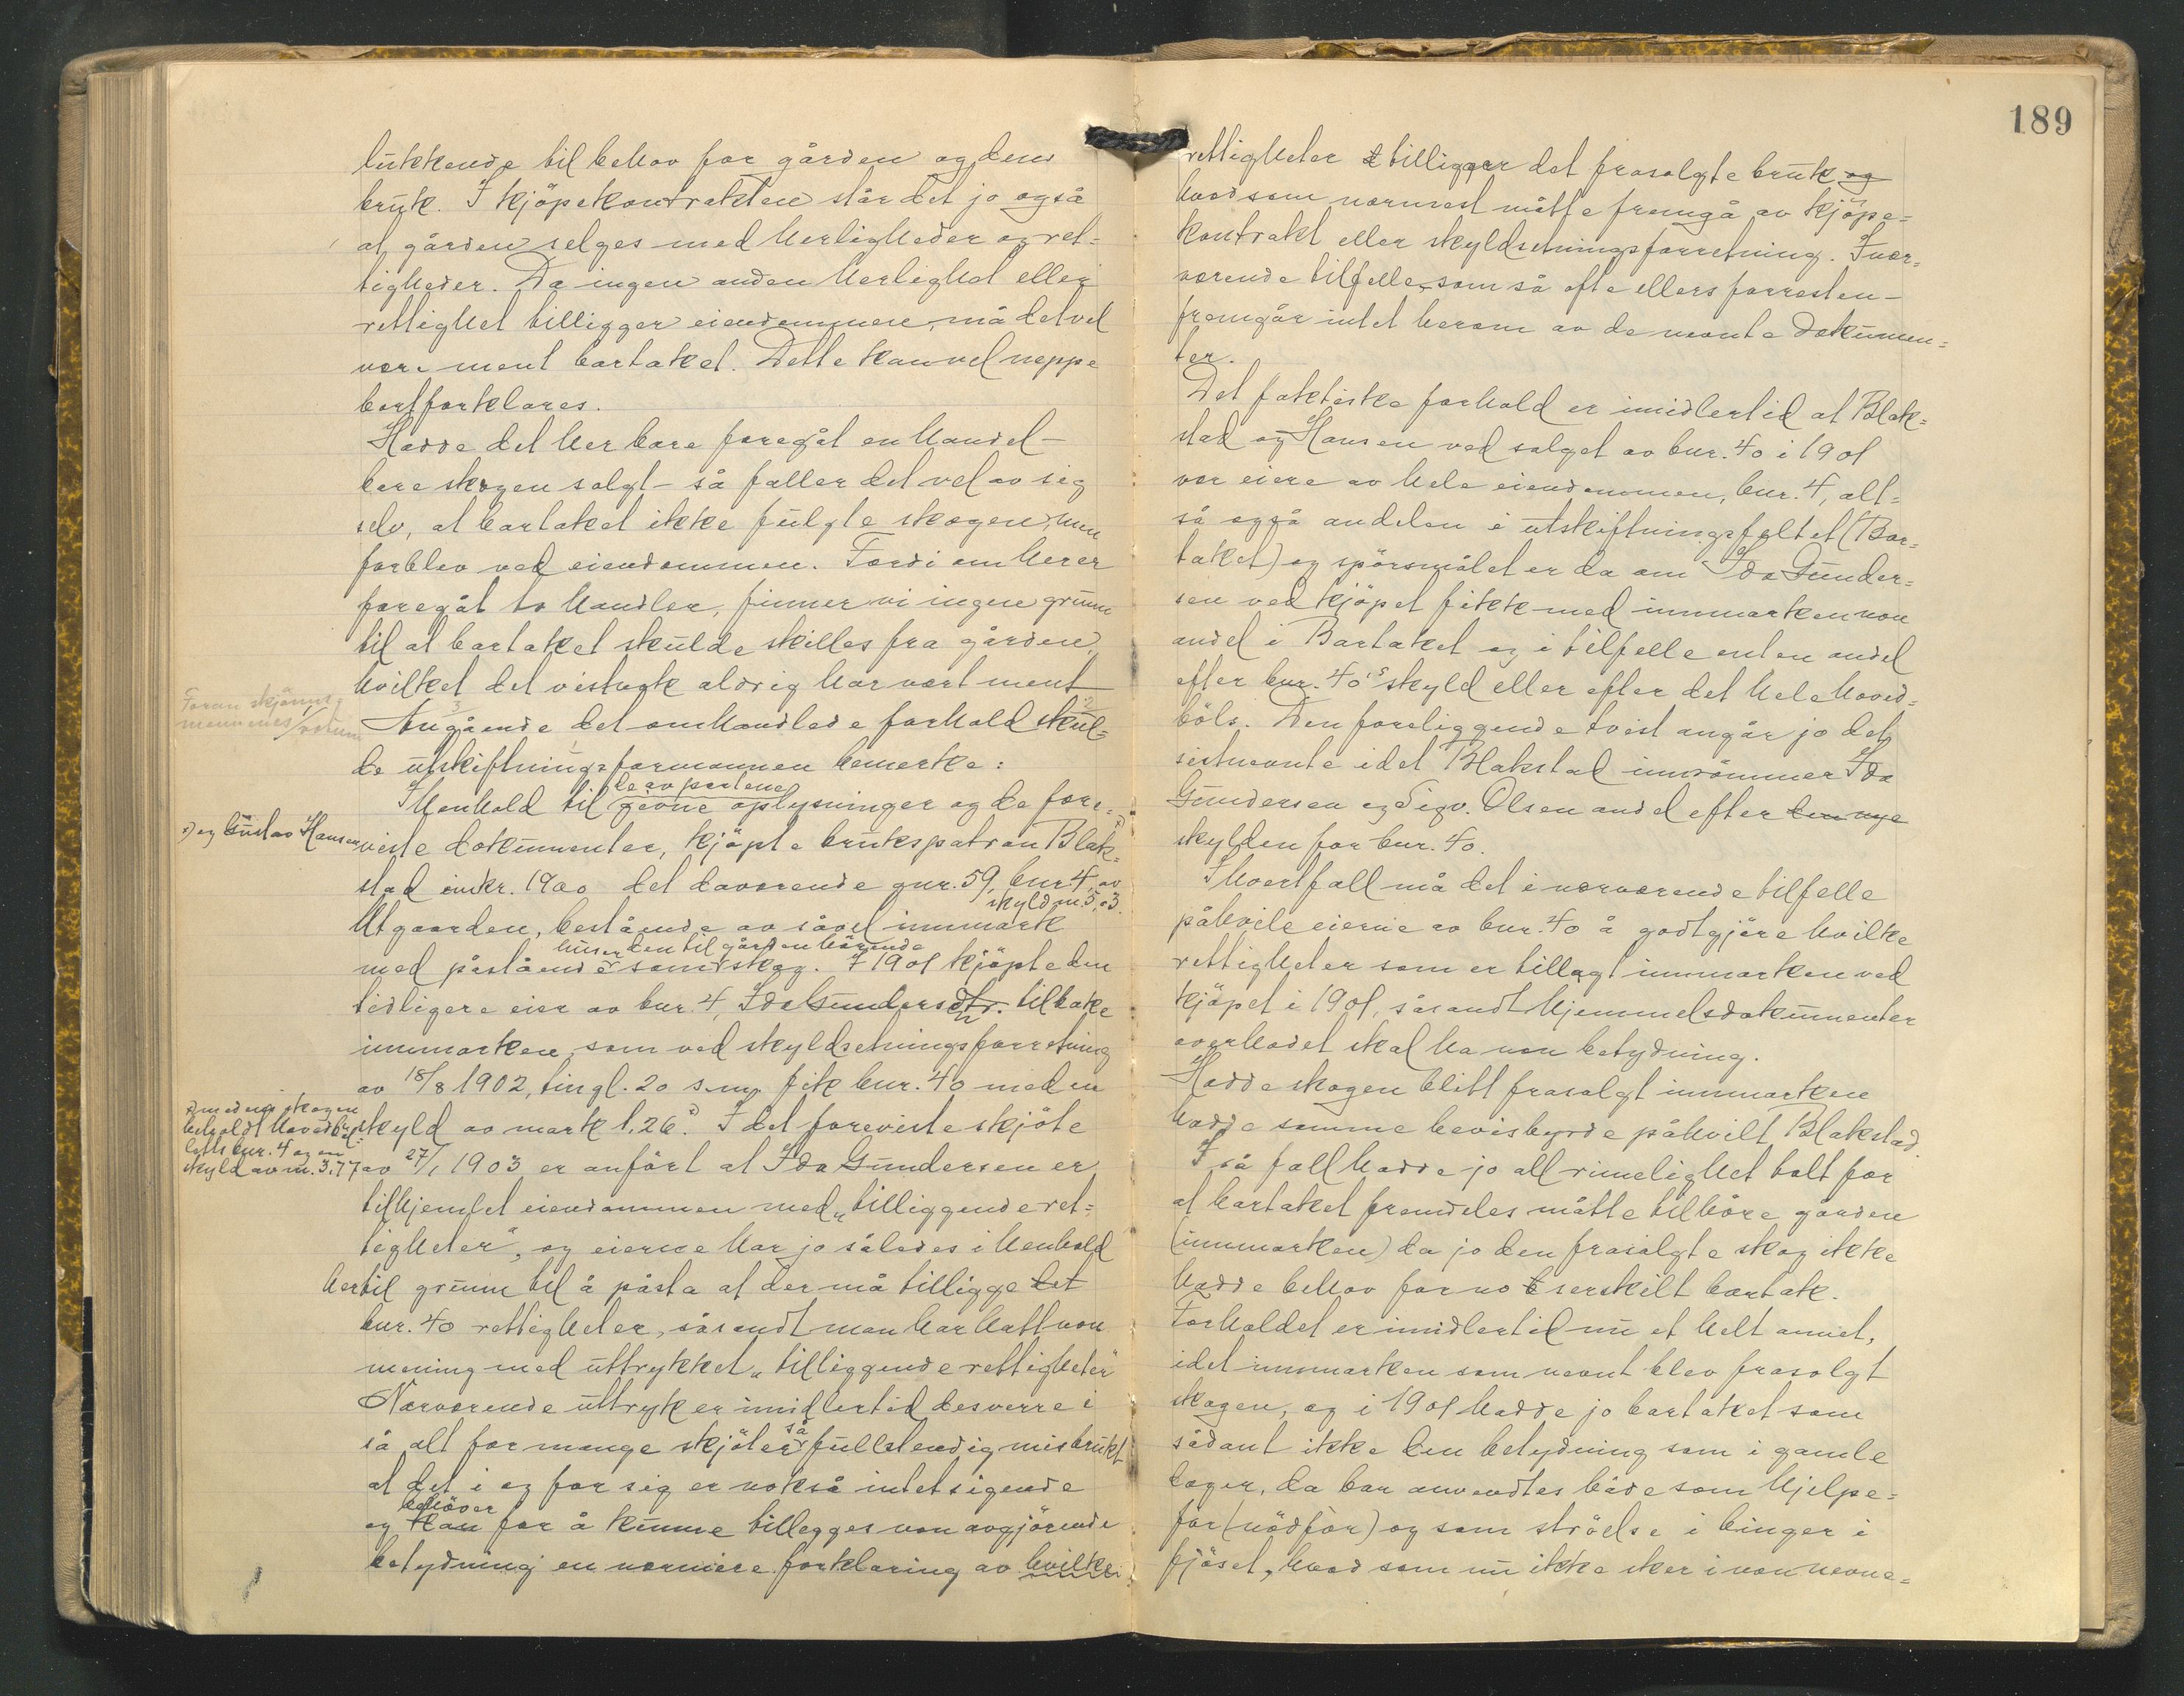 lukkende til behov for gården og dens
bruk. I kjöpekontrakten står det jo også
at gården selges med herligheder og ret=
tigheder. Da ingen anden herlighet eller
rettighet tilligger eiendommen, må det vel
være ment bartaket. Dette kan vel neppe
bortforklares.
Hadde det her bare foregåt en handel -
bare skogen solgt - så faller det vel av sig
selv, at bartaket ikke fulgte skogen, men
forblev ved eiendommen. Fordi om her er
foregåt to handler, finner vi ingen grunn
til at bartaket skulde skilles fra gården,
hvilket det vistnok aldrig har vært ment
Foran skjönns=
mennenes votum
Angående det omhandlede forhold skul=
de utskiftningsformannen bemerke:
I henhold til de av partene givne oplysninger og de fore=
x) og Gustav Hansen
viste dokumenter, kjöpte brukspatron Blak= x)
stad i 1900 det daværende gnr. 59, bnr 4, av
skyld m. 5,03.
Utgaarden, bestående av såvel innmark
med påstående huser som den til gården hörende skog. I 1901 kjöpte den
tidligere eier av bnr. 4, Ida Gundersen tilbake
innmarken, som ved skyldsetningsforretning
av 18/8 1902, tingl. 20 s.m. fik bnr. 40 med en
x) medens skogen
beholdt hovedböl=
lets bnr. 4 og en
skyld av m. 3,77
skyld av mark 1,26 x). I det foreviste skjöte
av 27/1 1903 er anfört at Ida Gundersen er
tilhjemlet eiendommen med "tilliggende ret=
tigheter", og eierne har jo således i henhold
hertil grunn til å påstå at der må tilligge det
bnr. 40 rettigheter, såsandt man har hatt non
mening med uttrykket "tilliggende rettigheter"
Nærværende uttryk er imidlertid desverre i
så alt for mange skjöter så fullstendig misbrukt
at det i og for sig er nokså intetsigende
og kan behöver for å kunne tillegges non avgjörende
betydning en nærmere forklaring av hvilke
189
rettigheter t tilligger det frasolgte bruk og
hvad som nærmest måtte fremgå av kjöpe=
kontrakt eller skyldsetningsforretning. I nær=
værende tilfelle, som så ofte ellers forresten -
fremgår intet herom av de nevnte dokumen=
ter.
Det faktiske forhold er imidlertid at Blak=
stad og Hansen ved salget av bnr. 40 i 1901
var eiere av hele eiendommen, bnr. 4, alt=
så også andelen i utskiftningsfeltet (Bar=
taket) og spörsmålet er da om Ida Gunder=
sen ved kjöpet fikk med innmarken non
andel i Bartaket og i tilfelle enten andel
efter bnr. 40's skyld eller efter det hele hoved=
böls. Den foreliggende tvist angår jo det
sistnevnte idet Blakstad innrömmer Ida
Gundersen og Sigv. Olsen andel efter den nye
skylden for bnr. 40.
I hvertfall må det i nærværende tilfelle
påhvile eierne av bnr. 40 å godtgjöre hvilke
rettigheter som er tillagt innmarken ved
kjöpet i 1901, såsandt hjemmelsdokumenter
overhodet skal ha non betydning.
Hadde skogen blitt frasolgt innmarken
hadde samme bevisbyrde påhvilt Blakstad.
I så fall hadde jo all rimelighet talt for
at bartaket fremdeles måtte tilhöre gården
(innmarken) da jo den frasolgte skog ikke
hadde behov for no serskilt bartak.
Forholdet er imidlertid nu et helt annet,
idet innmarken som nevnt blev frasolgt
skogen, og i 1901 hadde jo bartaket som
sådant ikke den betydning som i gamle
dager, da bar anvendtes både som hjelpe=
fôr (nödfôr) og som ströelse i binger i
fjöset, hvad som nu ikke sker i non nevne=